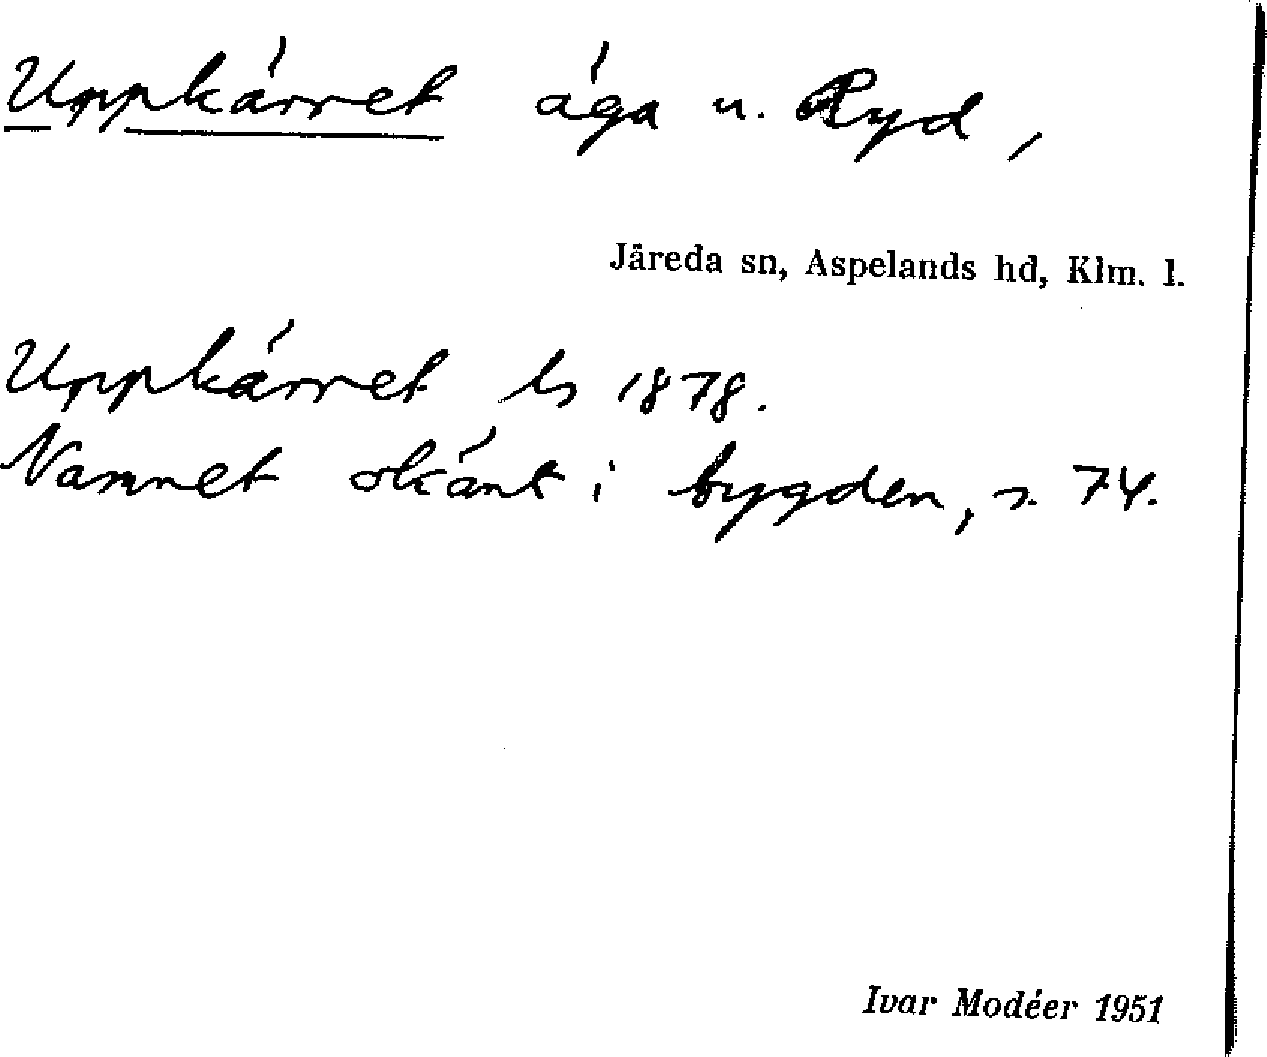 Uppkärret äga u. Ryd,
Järeda sn, Aspelands hd, Klm. l.
Uppkärret ls 1878.
Namnet okänt i bygden, s. 74.
Ivar Modéer 1951